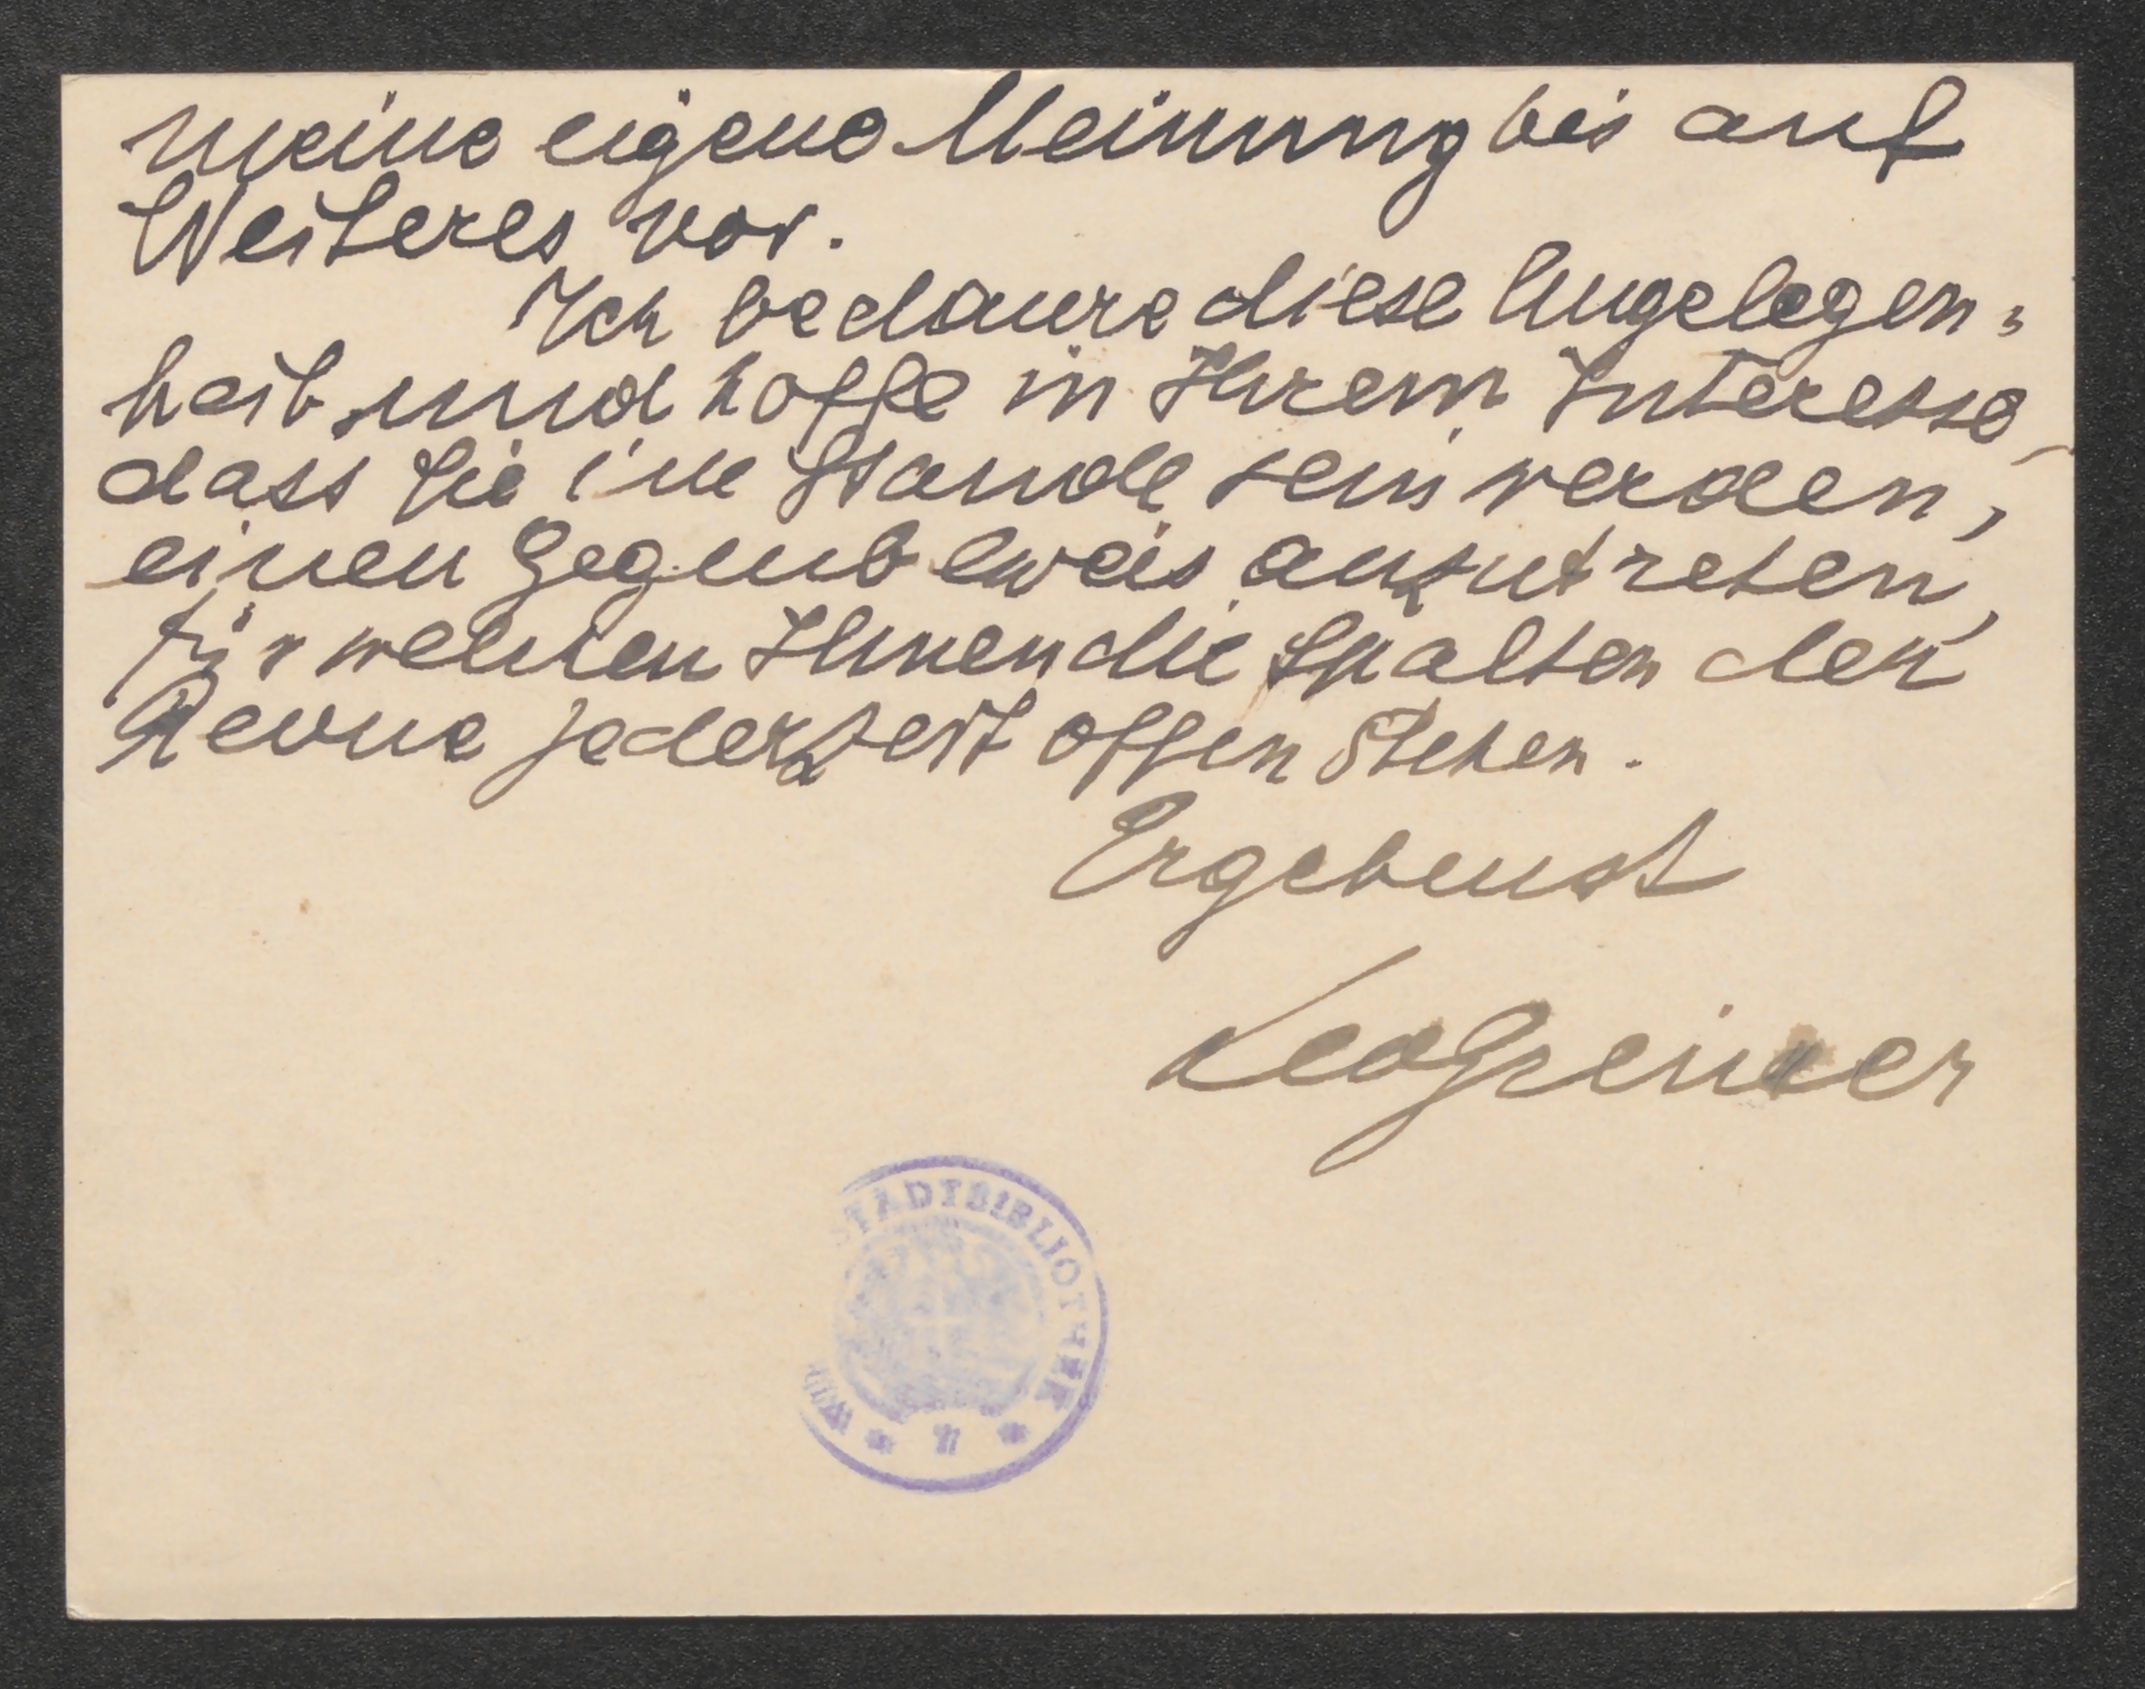 meine eigene Meinung bis auf
Weiteres vor.
Ich bedaure diese Angelegen=
heit und hoffe in Ihrem Interesse
dass Sie im Stande sein werden,
einen Gegenbeweis anzutreten,
für welchen Ihnen die Spalten der
Revue jederzeit offen stehen.
Ergebenst
Leo Greiner
STADTBIBLIOTHEK